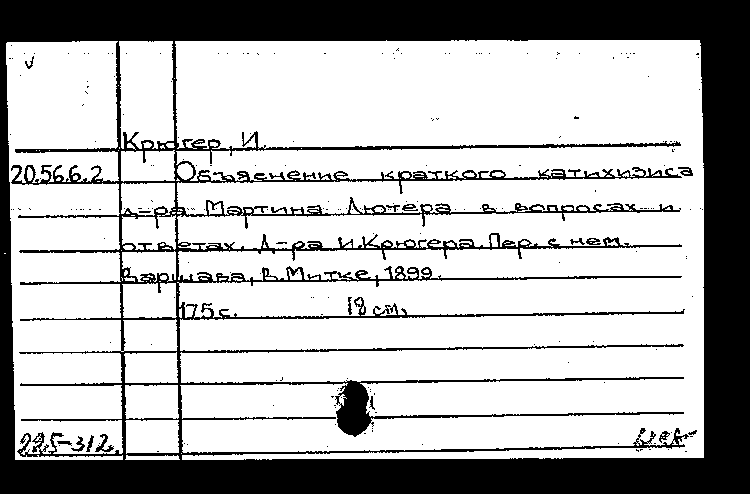 Крюгер, И.
20.56.6.2. Объяснение краткого катихизиса
д-ра Мартина Лютера в вопросах и
ответах. Д-ра И.Крюгера. Пер. с нем.
Варшава, В.Митке, 1899.
175 с. 18 см.
225-312.